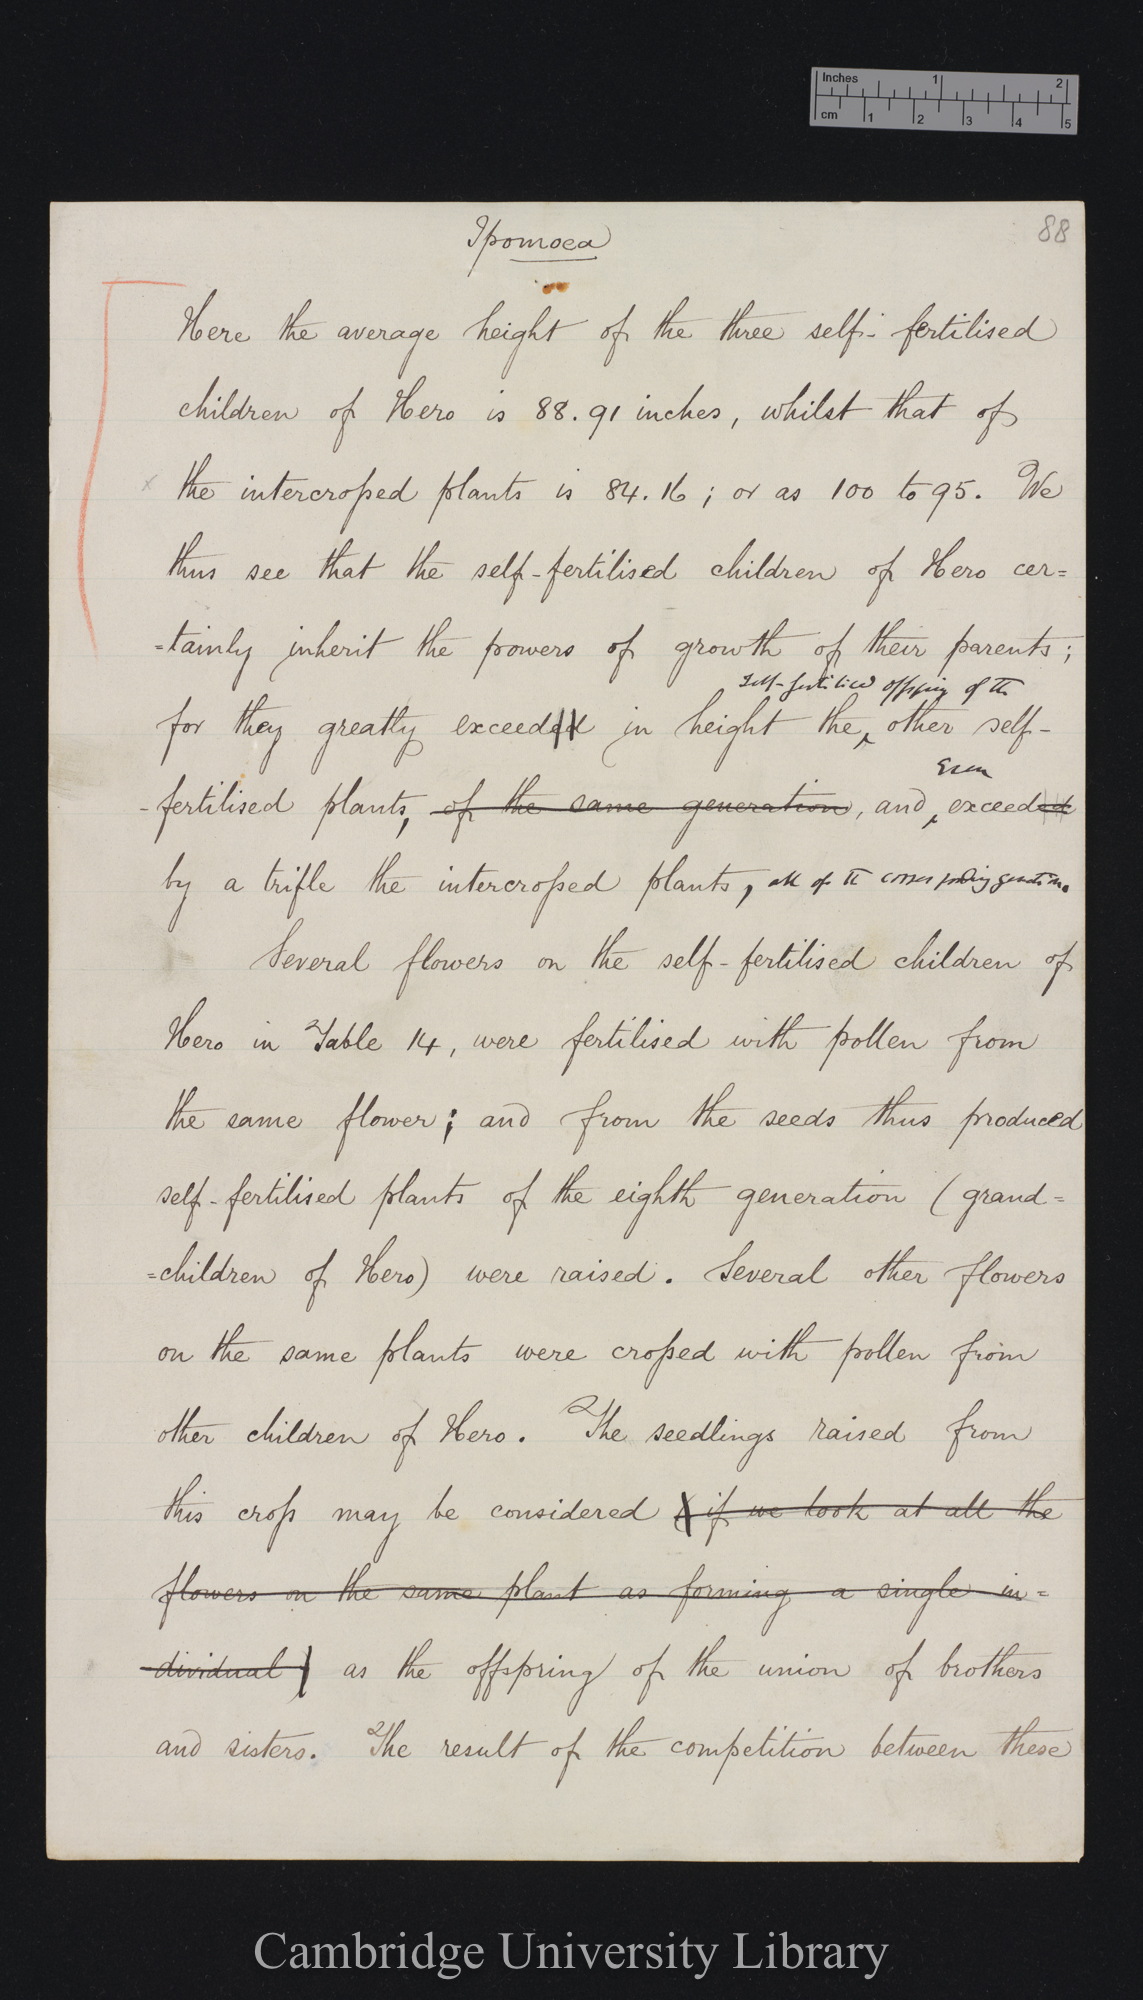 Inches 1 2
cm 1 2 3 4 5
Ipomoea
88
Here the average height of the three self-fertilised
children of Hero is 88.91 inches, whilst that of
the intercrossed plants is 84.16; or as 100 to 95. We
thus see that the self-fertilised children of Hero cer=
=tainly inherit the powers of growth of their parents;
self-fertilised offspring of the
for they greatly exceeded in height the other self-
Even
-fertilised plants, of the same generation, and exceeded
by a trifle the intercrossed plants, all of the corresponding generation.
Several flowers on the self-fertilised children of
Hero in Table 14, were fertilised with pollen from
the same flower; and from the seeds thus produced
self-fertilised plants of the eighth generation (grand=
=children of Hero) were raised. Several other flowers
on the same plants were crossed with pollen from
other children of Hero. The seedlings raised from
this cross may be considered (if we look at all the
flowers on the same plant as forming a single in=
dividual) as the offspring of the union of brothers
and sisters. The result of the competition between these
Cambridge University Library